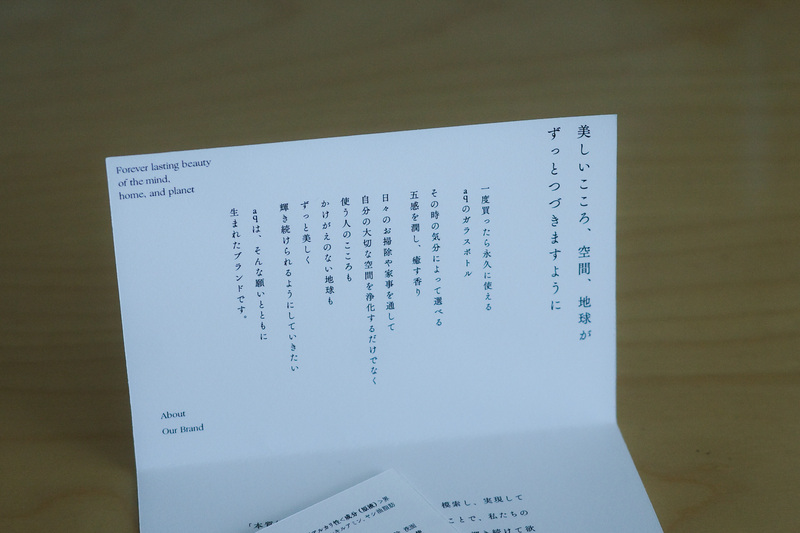 美しいこころ、空間、地球が
ずっとつづきますように
一度買ったら永久に使える
aqのガラスボトル
その時の気分によって選べる
五感を潤し、癒す香り
日々のお掃除や家事を通して
自分の大切な空間を浄化するだけでなく
使う人のこころも
かけがえのない地球も
ずっと美しく
輝き続けられるようにしていきたい
aqは、そんな願いとともに
生まれたブランドです。
Forever lasting beauty
of the mind,
home, and planet
About
Our Brand
模索し、実現して
ことで、私たちの
き続けて欲
アルカリ性<成分(原液)>水